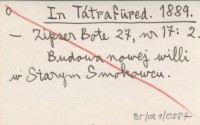 In Tátrafüred. 1889.
– Zipser Bote 27, nr 17: 2.
Budowa nowej willi
w Starym Smokowcu.